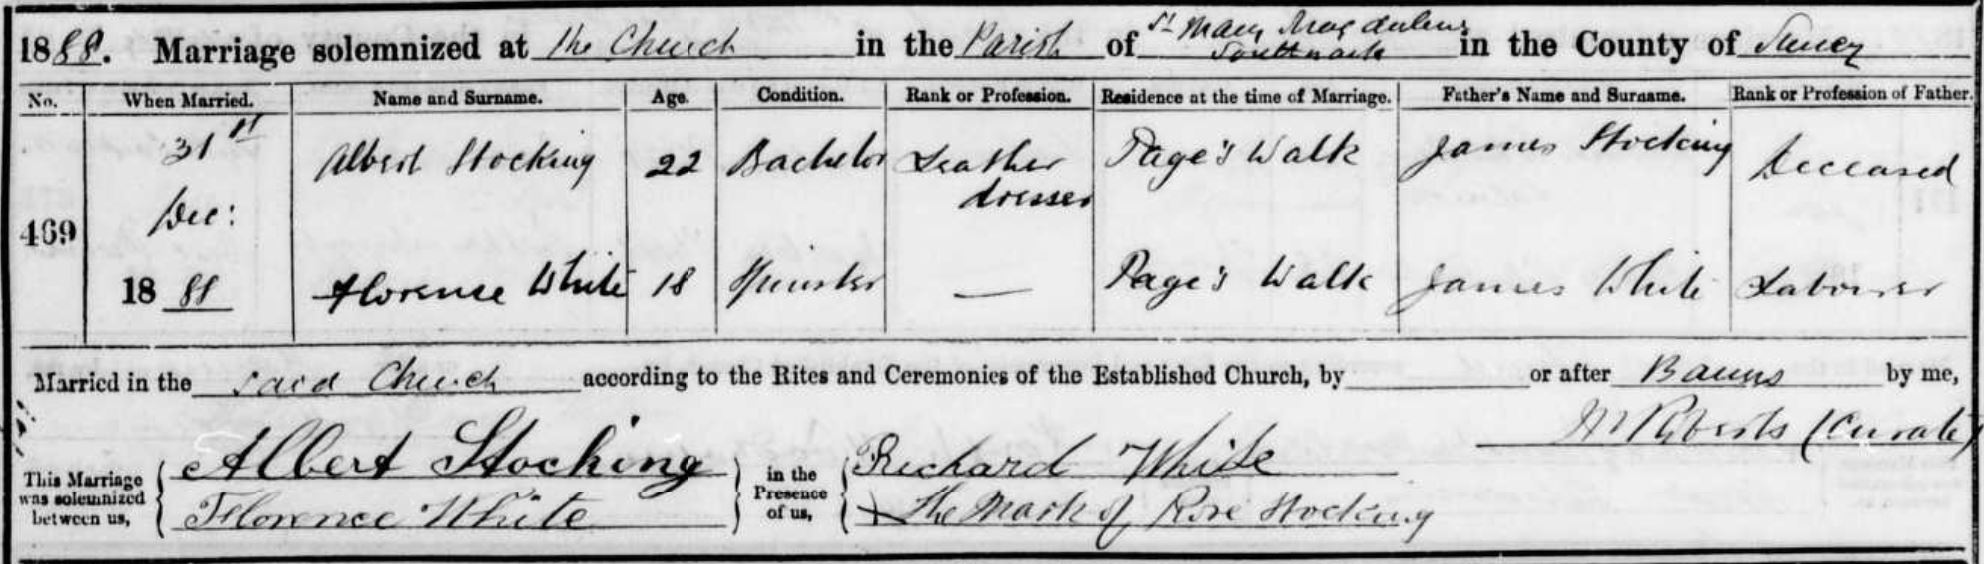 1888. Marriage solemnized at the Church in the Parish of St Mary Magdalene Southwark in the County of Surrey
No. When Married. Name and Surname. Age. Condition. Rank or Profession. Residence at the time of Marriage. Father's Name and Surname. Rank or Profession of Father.
469
31st Dec: 1888
Albert Stocking 22 Bachelor Leather dresser Page's Walk James Stocking Deceased
Florence White 18 Spinster — Page's Walk James White Labourer
Married in the said Church according to the Rites and Ceremonies of the Established Church, by or after Banns by me,
Roberts (Curate)
This Marriage was solemnized between us,
Albert Stocking
Florence White
in the Presence of us,
Richard White
X The Mark of Rose Stocking